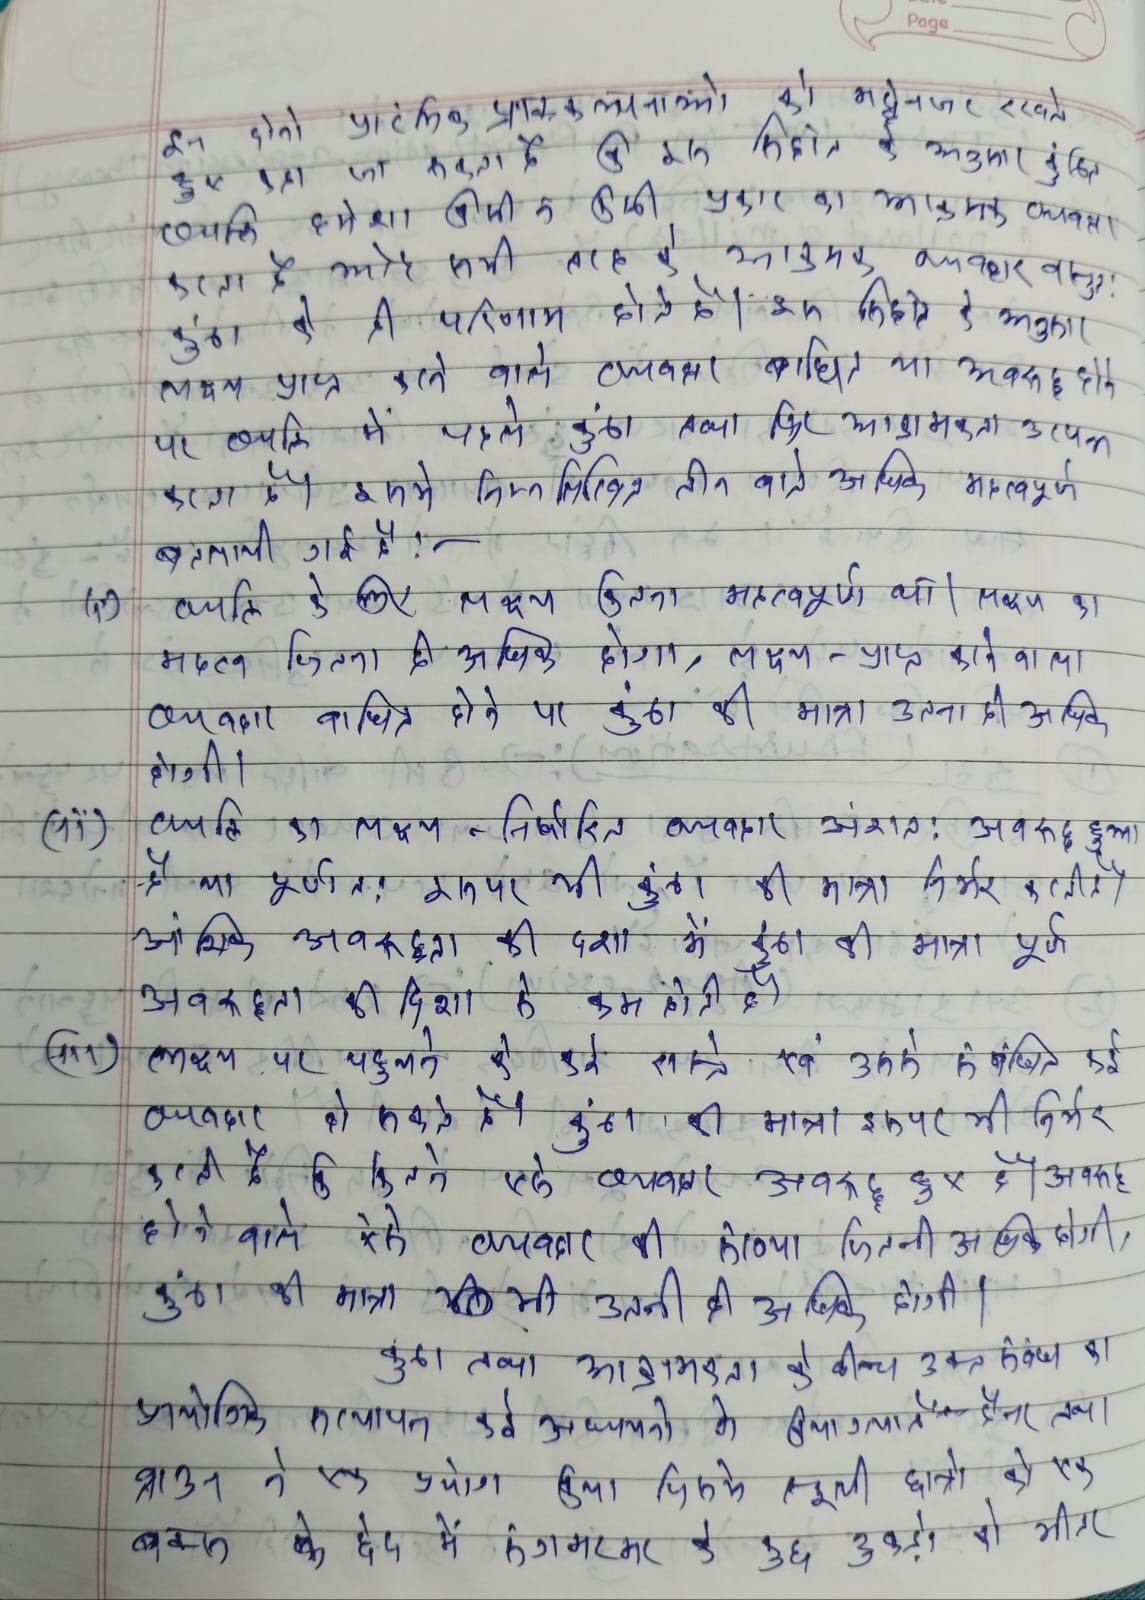 Date
Page
इन दोनो प्रारंभिक प्राक्कल्पनाओं को मद्देनजर रखते
हुए कहा जा सकता है कि इस सिद्धांत के अनुसार कुंठित
व्यक्ति हमेशा किसी न किसी प्रकार का आक्रमक व्यवहार
करता है और सभी तरह के आक्रमक व्यवहार वस्तुत:
कुंठा के ही परिणाम होते है। इस सिद्धांत के अनुसार
लक्ष्य प्राप्त करने वाले व्यवहार बाधित या अवरूद्ध होने
पर व्यक्ति में पहले कुंठा तथा फिर आक्रामकता उत्पन्न
करता है। इसमे निम्नलिखित तीन बाते अधिक महत्वपूर्ण
बतलायी गई है:-
(i) व्यक्ति के लिए लक्ष्य कितना महत्वपूर्ण था। लक्ष्य का
महत्व जितना ही अधिक होगा, लक्ष्य - प्राप्त करने वाला
व्यवहार बाधित होने पर कुंठा की मात्रा उतना ही अधिक
होगी।
(ii) व्यक्ति का लक्ष्य - निर्धारित व्यवहार अंशत: अवरूद्ध हुआ
है या पूर्णत: इसपर भी कुंठा की मात्रा निर्भर करती है।
आंशिक अवरूद्धता की दशा में कुंठा की मात्रा पूर्ण
अवरूद्धता की दिशा से कम होती है।
(iii) लक्ष्य पर पहुचने के कई रास्ते एवं उससे संबंधित कई
व्यवहार हो सकते है। कुंठा की मात्रा इसपर भी निर्भर
करती है कि कितने ऐसे व्यवहार अवरूद्ध हुए है। अवरूद्ध
होने वाले ऐसे व्यवहार की संख्या जितनी अधिक होगी,
कुंठा की मात्रा भी उतनी ही अधिक होगी।
कुंठा तथा आक्रामकता के बीच उक्त संबंध का
प्रायोगिक सत्यापन कई अध्ययनो मे किया गया है
तथा
ब्राउन ने एक प्रयोग किया जिसमे स्कूली छात्रो को एक
बक्स के छेद में संगमरमर के कुछ टुकड़ो को भीतर